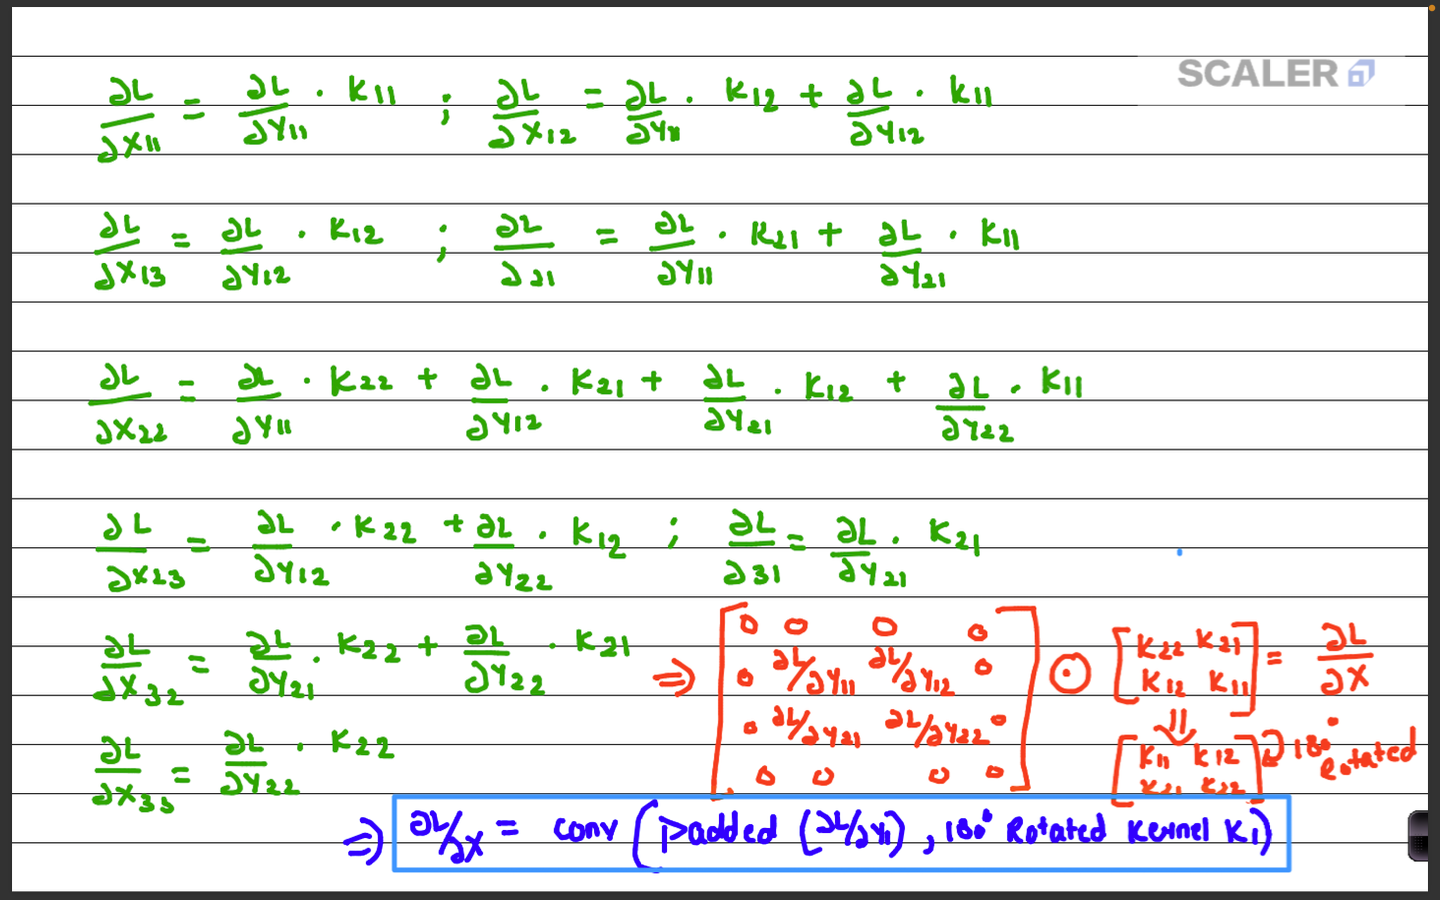 SCALER
∂L/∂X11 = ∂L/∂Y11 · K11 ; ∂L/∂X12 = ∂L/∂Y11 · K12 + ∂L/∂Y12 · K11
∂L/∂X13 = ∂L/∂Y12 · K12 ; ∂L/∂21 = ∂L/∂Y11 · K21 + ∂L/∂Y21 · K11
∂L/∂X22 = ∂L/∂Y11 · K22 + ∂L/∂Y12 · K21 + ∂L/∂Y21 · K12 + ∂L/∂Y22 · K11
∂L/∂X23 = ∂L/∂Y12 · K22 + ∂L/∂Y22 · K12 ; ∂L/∂31 = ∂L/∂Y21 · K21
∂L/∂X32 = ∂L/∂Y21 · K22 + ∂L/∂Y22 · K21
∂L/∂X33 = ∂L/∂Y22 · K22
⇒ [ 0 0 0 0
0 ∂L/∂Y11 ∂L/∂Y12 0
0 ∂L/∂Y21 ∂L/∂Y22 0
0 0 0 0 ]
⊙ [ K22 K21
K12 K11 ] = ∂L/∂X
⇓
[ K11 K12
K21 K22 ] 180° Rotated
⇒ ∂L/∂X = conv (Padded (∂L/∂Y1), 180° Rotated Kernel K1)